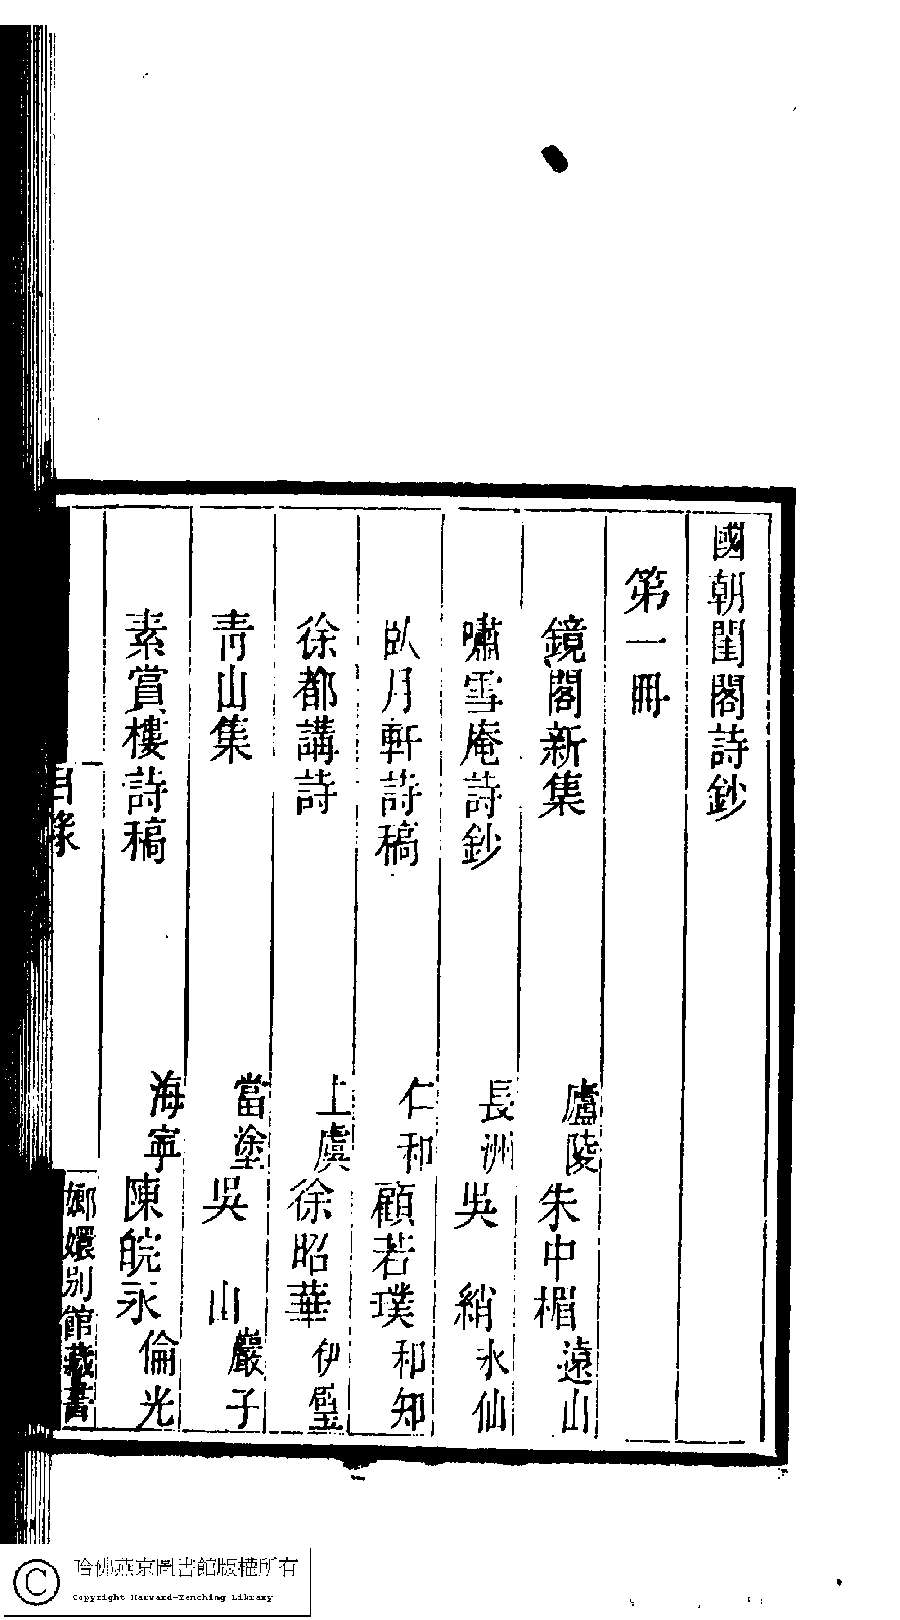 國朝閨閣詩鈔
第一冊
鏡閣新集 廬陵 朱中楣 遠山
嘯雪庵詩鈔 長洲 吳綃 氷仙
臥月軒詩稿 仁和 顧若璞 和知
徐都講詩 上虞 徐昭華 伊璧
青山集 當塗 吳山 巖子
素賞樓詩稿 海寧 陳皖永 倫光
目錄
嫏嬛別館藏書
哈佛燕京圖書館版權所有
Copyright Harvard-Yenching Library